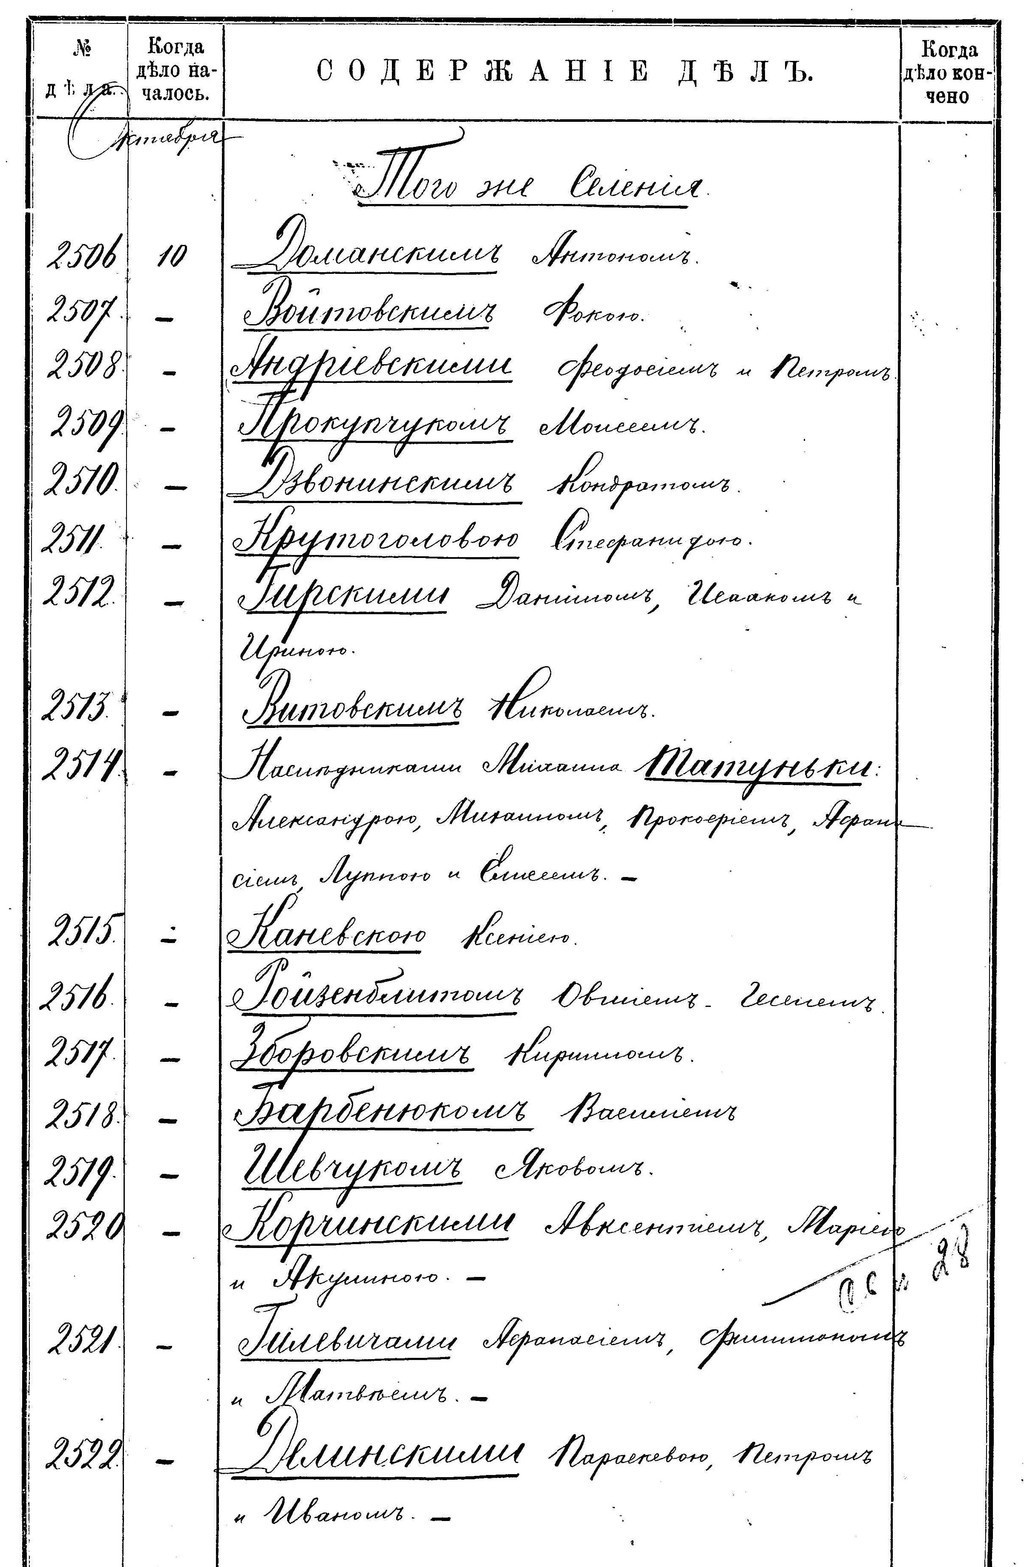 № дѣла.
Когда дѣло началось.
СОДЕРЖАНІЕ ДѢЛЪ.
Когда дѣло кончено
Октября
Того же Селенія.
2506 10 Доманскимъ Антономъ.
2507. — Войтовскимъ Фокою.
2508. — Андріевскими Феодосіемъ и Петромъ.
2509. — Прокупчукомъ Моисеемъ.
2510. — Дзвонинскимъ Кондратомъ.
2511. — Крутоголовою Стефанидою.
2512. — Гирскими Даніиломъ, Исаакомъ и
Ириною.
2513. — Витовскимъ Николаемъ.
2514. — Наслѣдниками Михаила Татуньки:
Александрою, Михаиломъ, Прокофіемъ, Афана-
сіемъ, Луппою и Елисеемъ. —
2515. — Каневскою Ксеніею.
2516. — Ройзенблитомъ Овшіемъ-
2517. — Зборовскимъ Кирилломъ.
2518. — Барбенюкомъ Василіемъ
2519. — Шевчукомъ Яковомъ.
2520 — Корчинскими Авксентіемъ, Маріею
и Акулиною. —
28
2521. — Гилевичами Афанасіемъ, Филимономъ
и Матвѣемъ. —
2522. — Дѣлинскими Параскевою, Петромъ
и Иваномъ. —